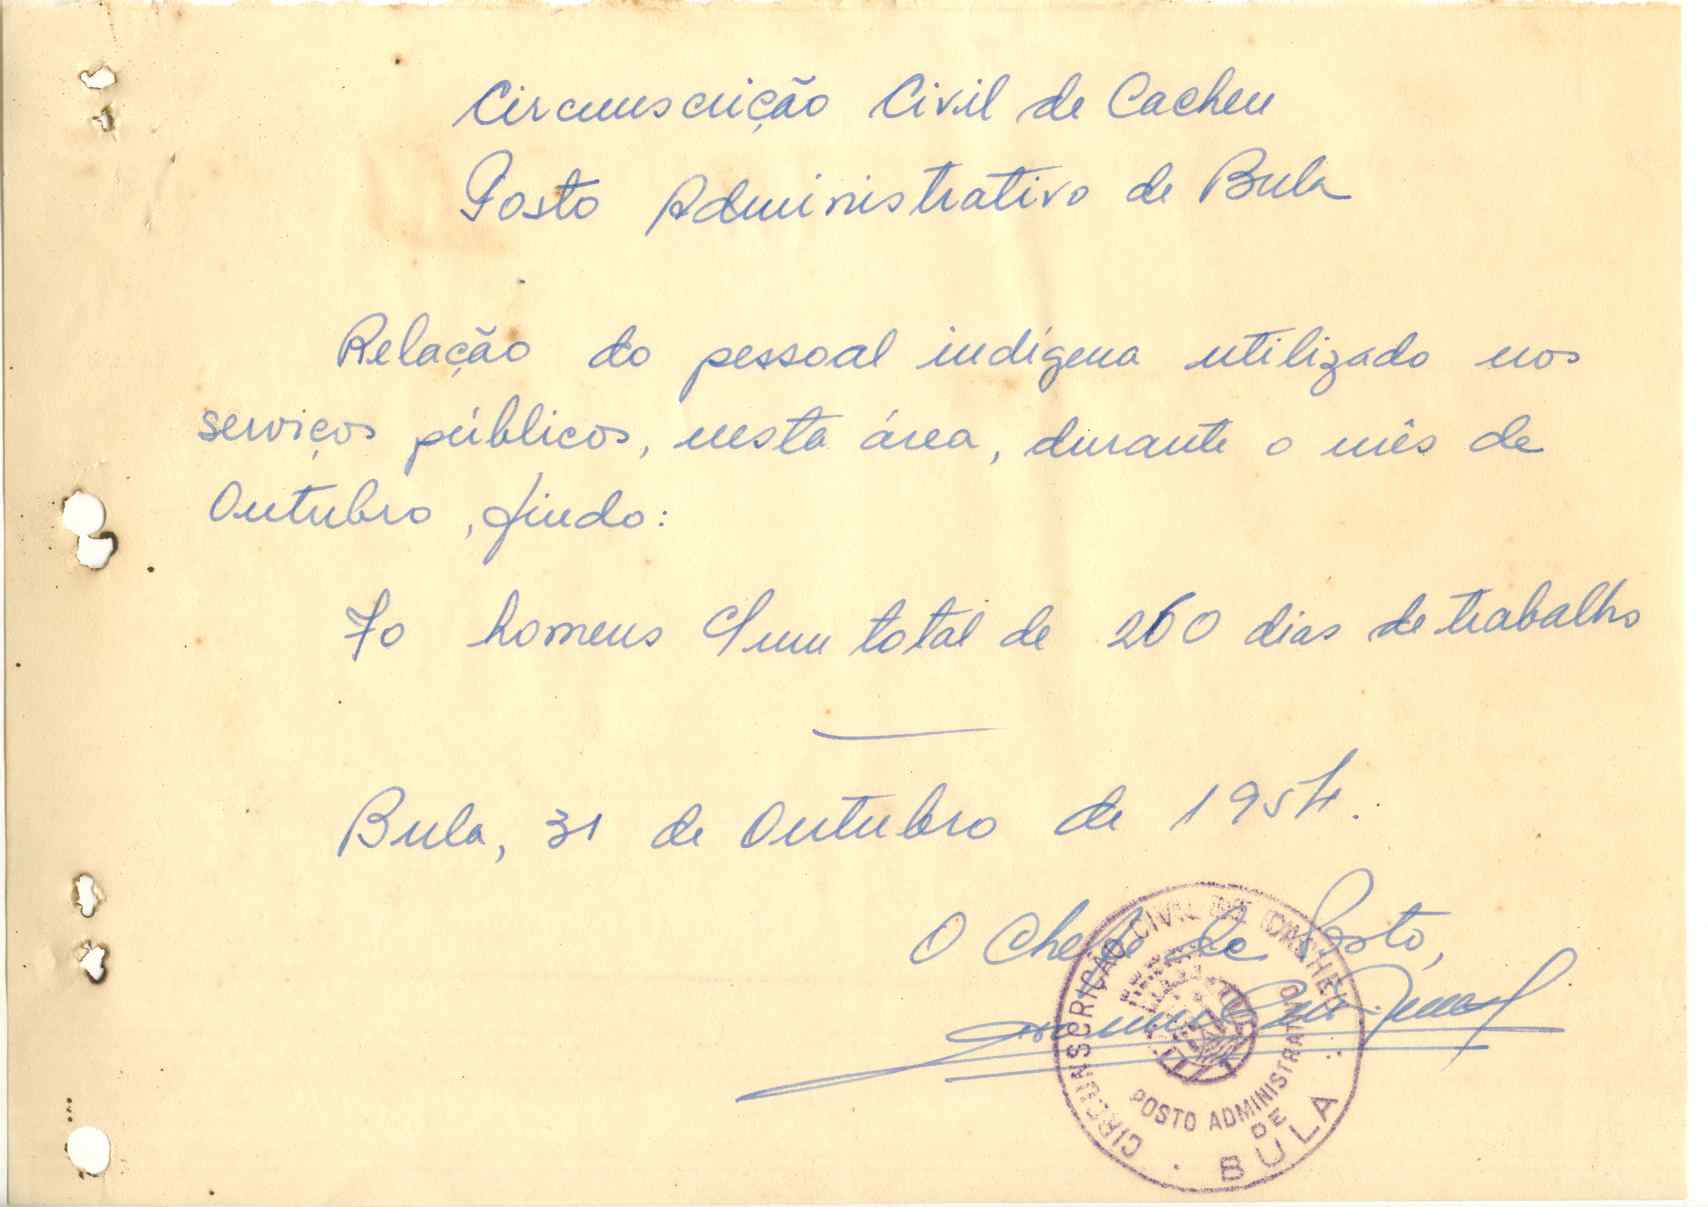 Circunscrição Civil de Cacheu
Posto Administrativo de Bula
Relação do pessoal indígena utilizado nos
serviços públicos, nesta área, durante o mês de
Outubro, findo:
70 homens num total de 260 dias de trabalho
Bula, 31 de Outubro de 1954.
O Chefe de Posto,
CIRCUNSCRIÇÃO CIVIL DE CACHEU
POSTO ADMINISTRATIVO
DE
BULA